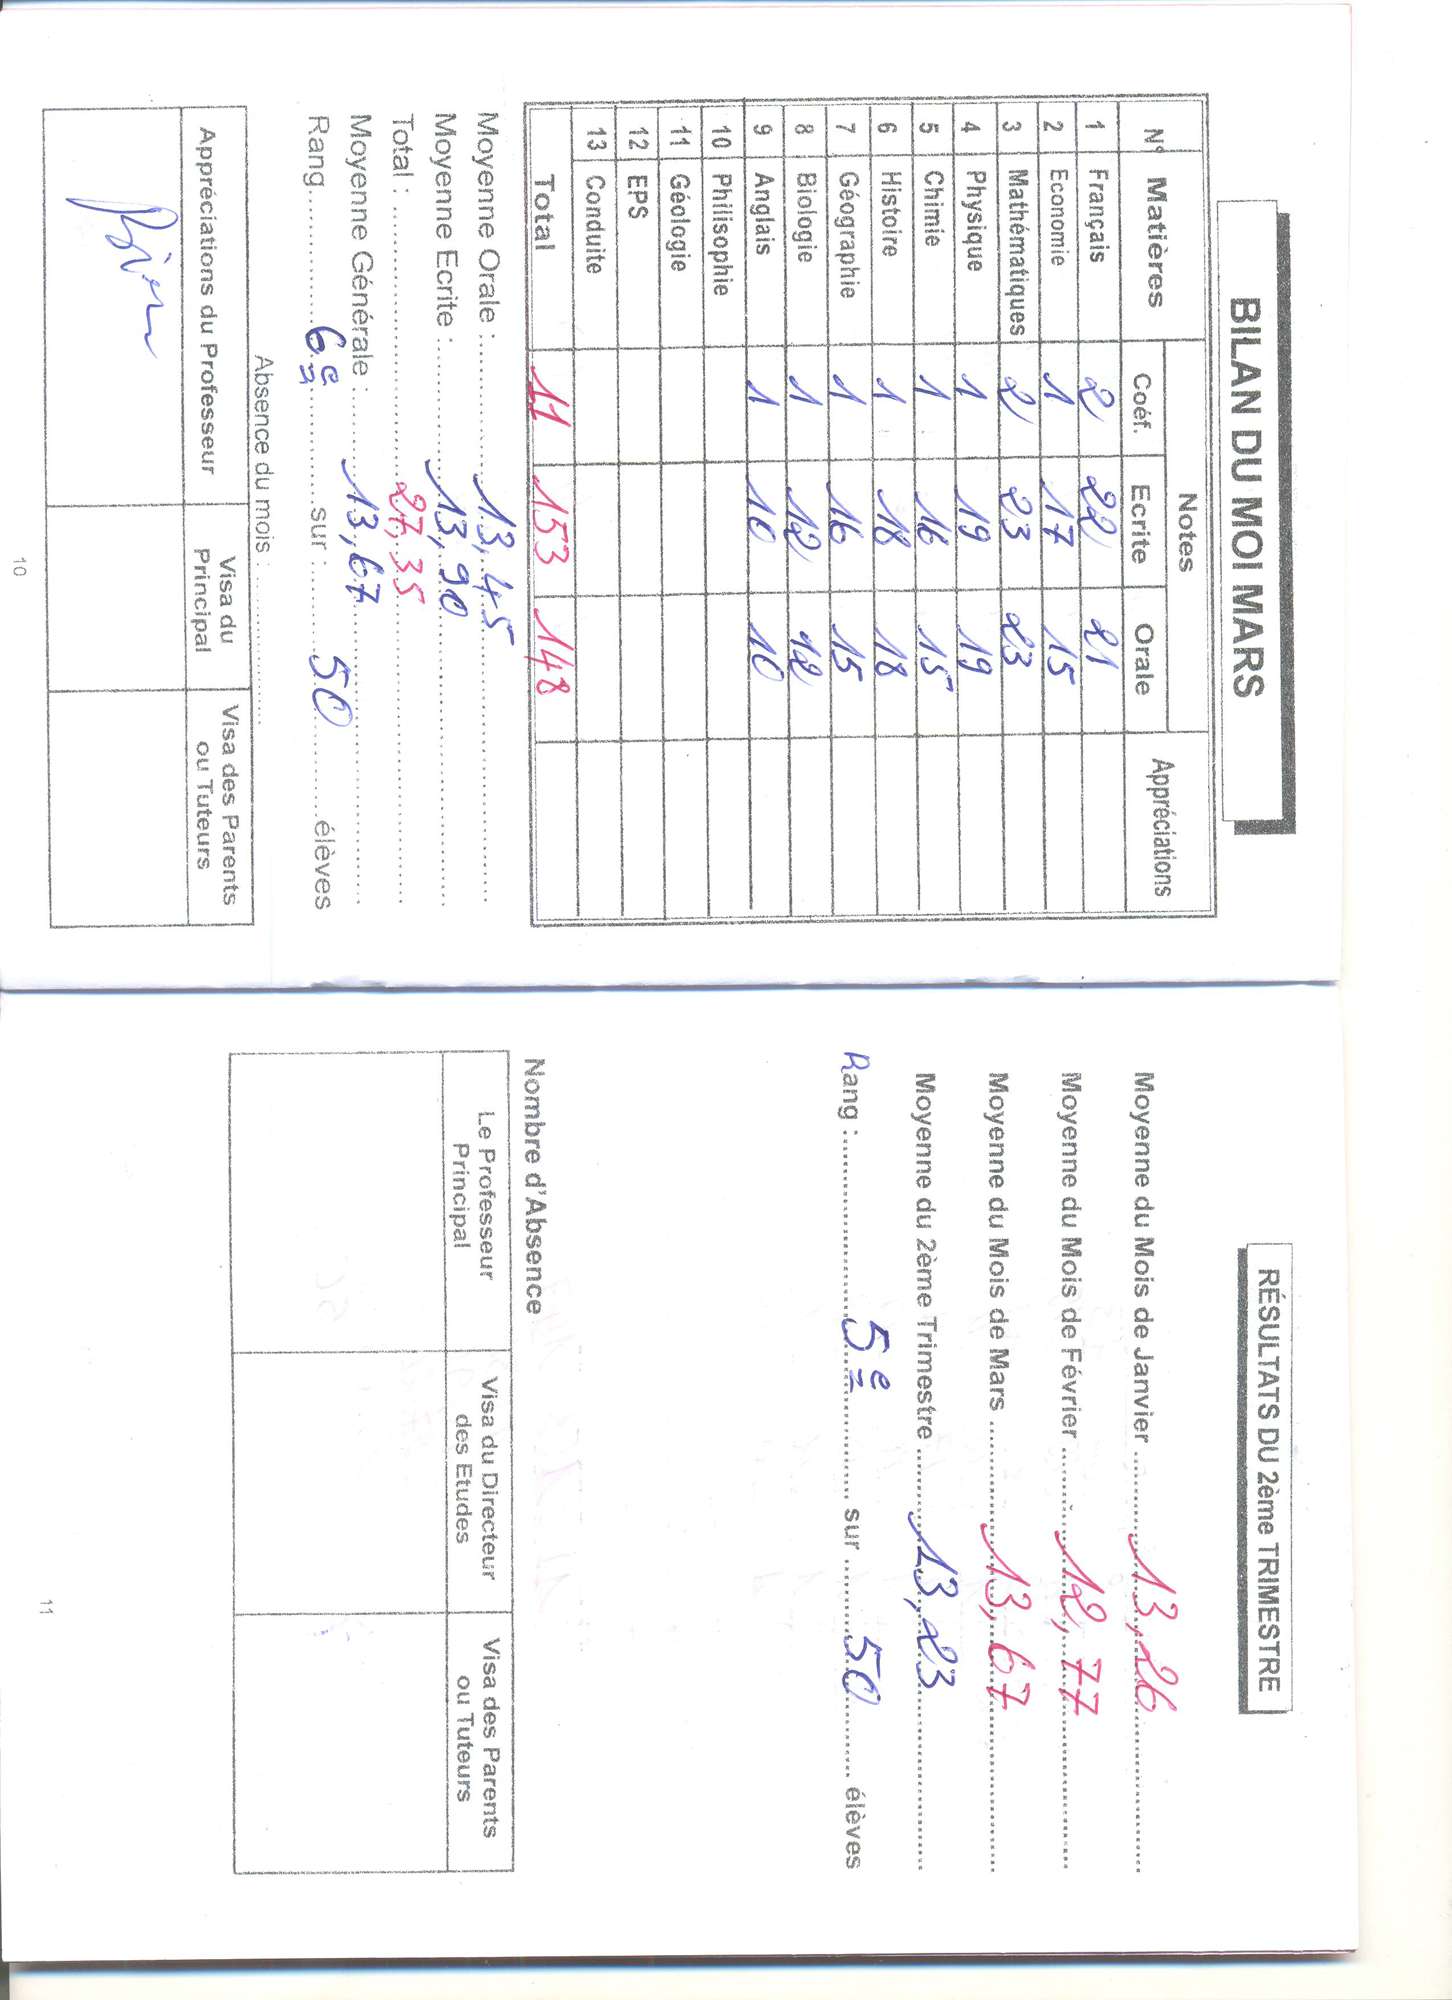 BILAN DU MOI MARS
N° Matières Notes Appréciations
Coéf. Ecrite Orale
1 Français 2 22 21
2 Economie 1 17 15
3 Mathématiques 2 23 23
4 Physique 1 19 19
5 Chimie 1 16 15
6 Histoire 1 18 18
7 Géographie 1 16 15
8 Biologie 1 12 12
9 Anglais 1 10 10
10 Philisophie
11 Géologie
12 EPS
13 Conduite
Total 11 153 148
Moyenne Orale : 13,45
Moyenne Ecrite : 13,90
Total : 27,35
Moyenne Générale : 13,67
Rang 6e sur : 50 élèves
Absence du mois :
Appréciations du Professeur Visa du Principal Visa des Parents ou Tuteurs
Bien
10
RÉSULTATS DU 2ème TRIMESTRE
Moyenne du Mois de Janvier 13,26
Moyenne du Mois de Février 12,77
Moyenne du Mois de Mars 13,67
Moyenne du 2ème Trimestre 13,23
Rang : 5e sur 50 élèves
Nombre d'Absence
Le Professeur Principal Visa du Directeur des Etudes Visa des Parents ou Tuteurs
11